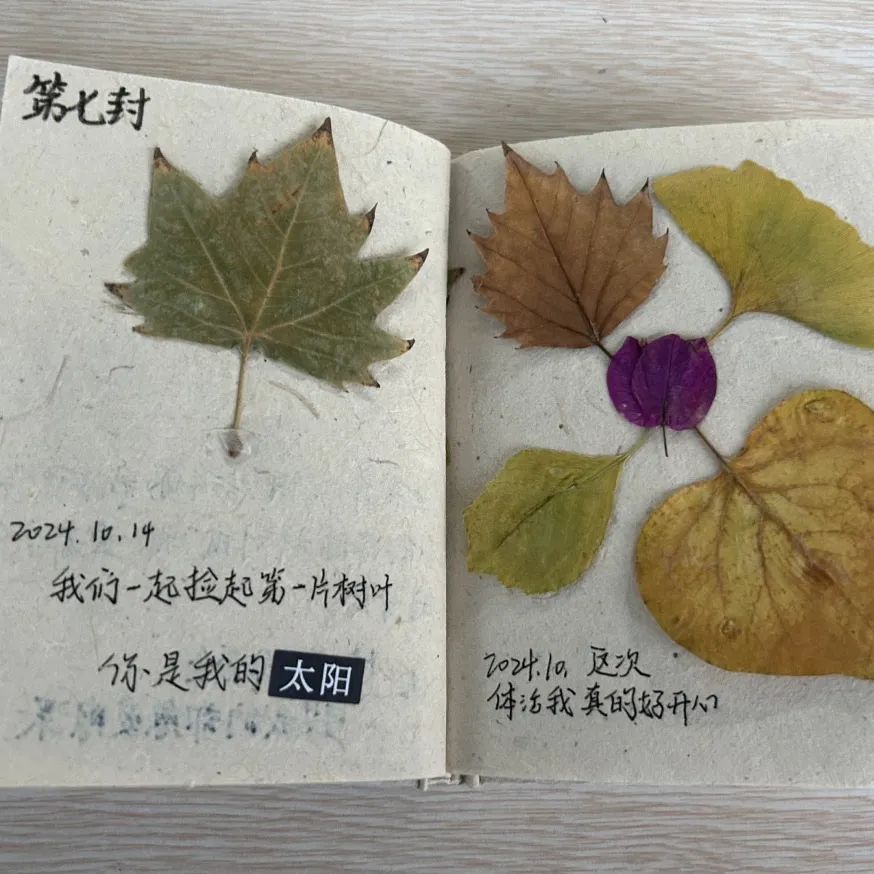 第七封
2024.10.14
我们一起捡起第一片树叶
你是我的太阳
2024.10. 这次
体活我真的好开心